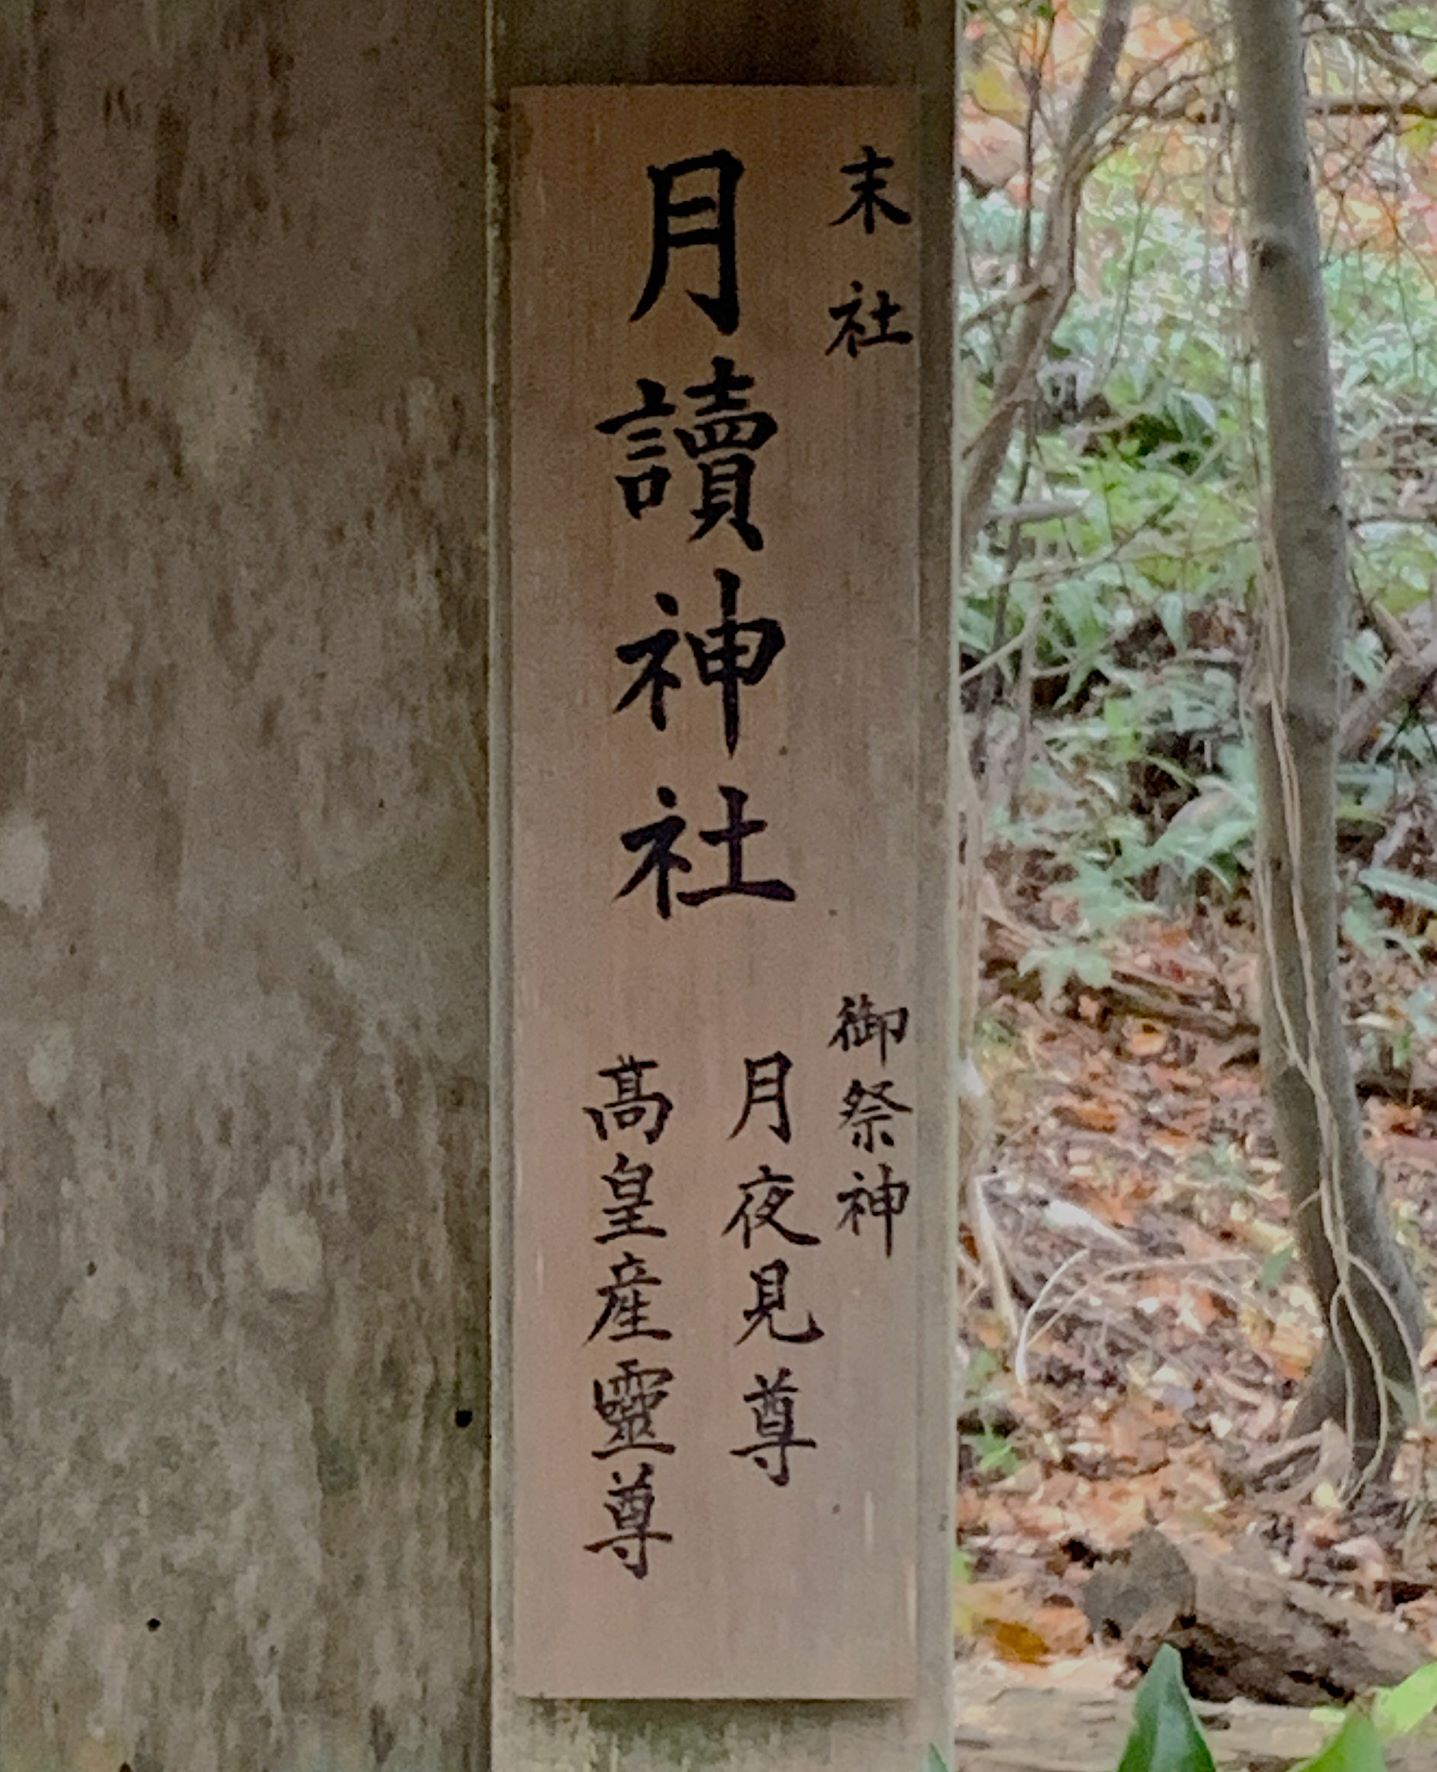 末社
月讀神社
御祭神
月夜見尊
髙皇産靈尊